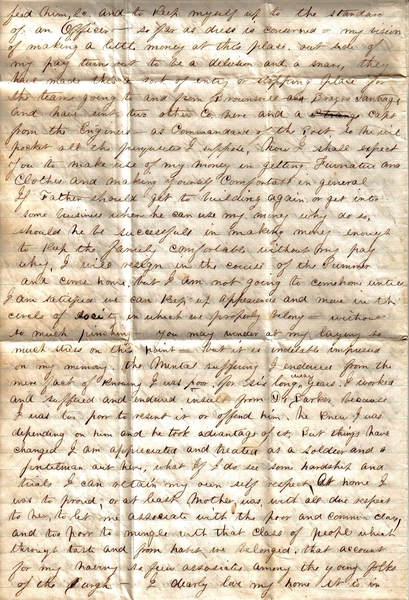 feed him, &c and to keep myself up to the standard
of an Officer — so far as dress is concerned & my vision
of making a little money at this place, out side of
my pay turn out to be a delusion and a snare, they
have made this a sort of entry or stopping place for
the teams going to and from Brownsville and Brazos Santiago
and have sent two other Co here and a strange Capt
from the Engineers as Commandant of the Post, so he will
pocket all the perquisites I suppose, Now I shall expect
you to make use of my money in getting Furniture and
Clothes and making yourself Comfortable in general
If Father should get to building again or get into
some business where he can use my money why do so,
should he be successful in making money enough
to keep the family comfortable without my pay
why, I will resign in the course of the Summer
and come home, but I am not going to come home until
I am satisfied we can keep up appearance and move in the
circle of society in which we properly belong — without
so much pinching — you may wonder at my laying so
much stress on this point — but it is indelible impressed
on my memory, the mental suffering I endured from the
mere fact of knowing I was poor, for six long years, I worked
and suffered and endured insult from Dr Parker because
I was too poor to resent it or offend him. he knew I was
depending on him and he took advantage of it. But things have
changed I am appreciated and treated as a soldier and a
gentleman out here, what if I do see some hardship and
trials I can retain my own self respect, At home I
was to proud, or at least Mother was, with all due respect
to her, to let me associate with the poor and common class,
and too poor to mingle with that class of people which
through taste and from habit we belonged, that account
for my having so few associates among the young folks
of the Burgh — I dearly love my home it is in